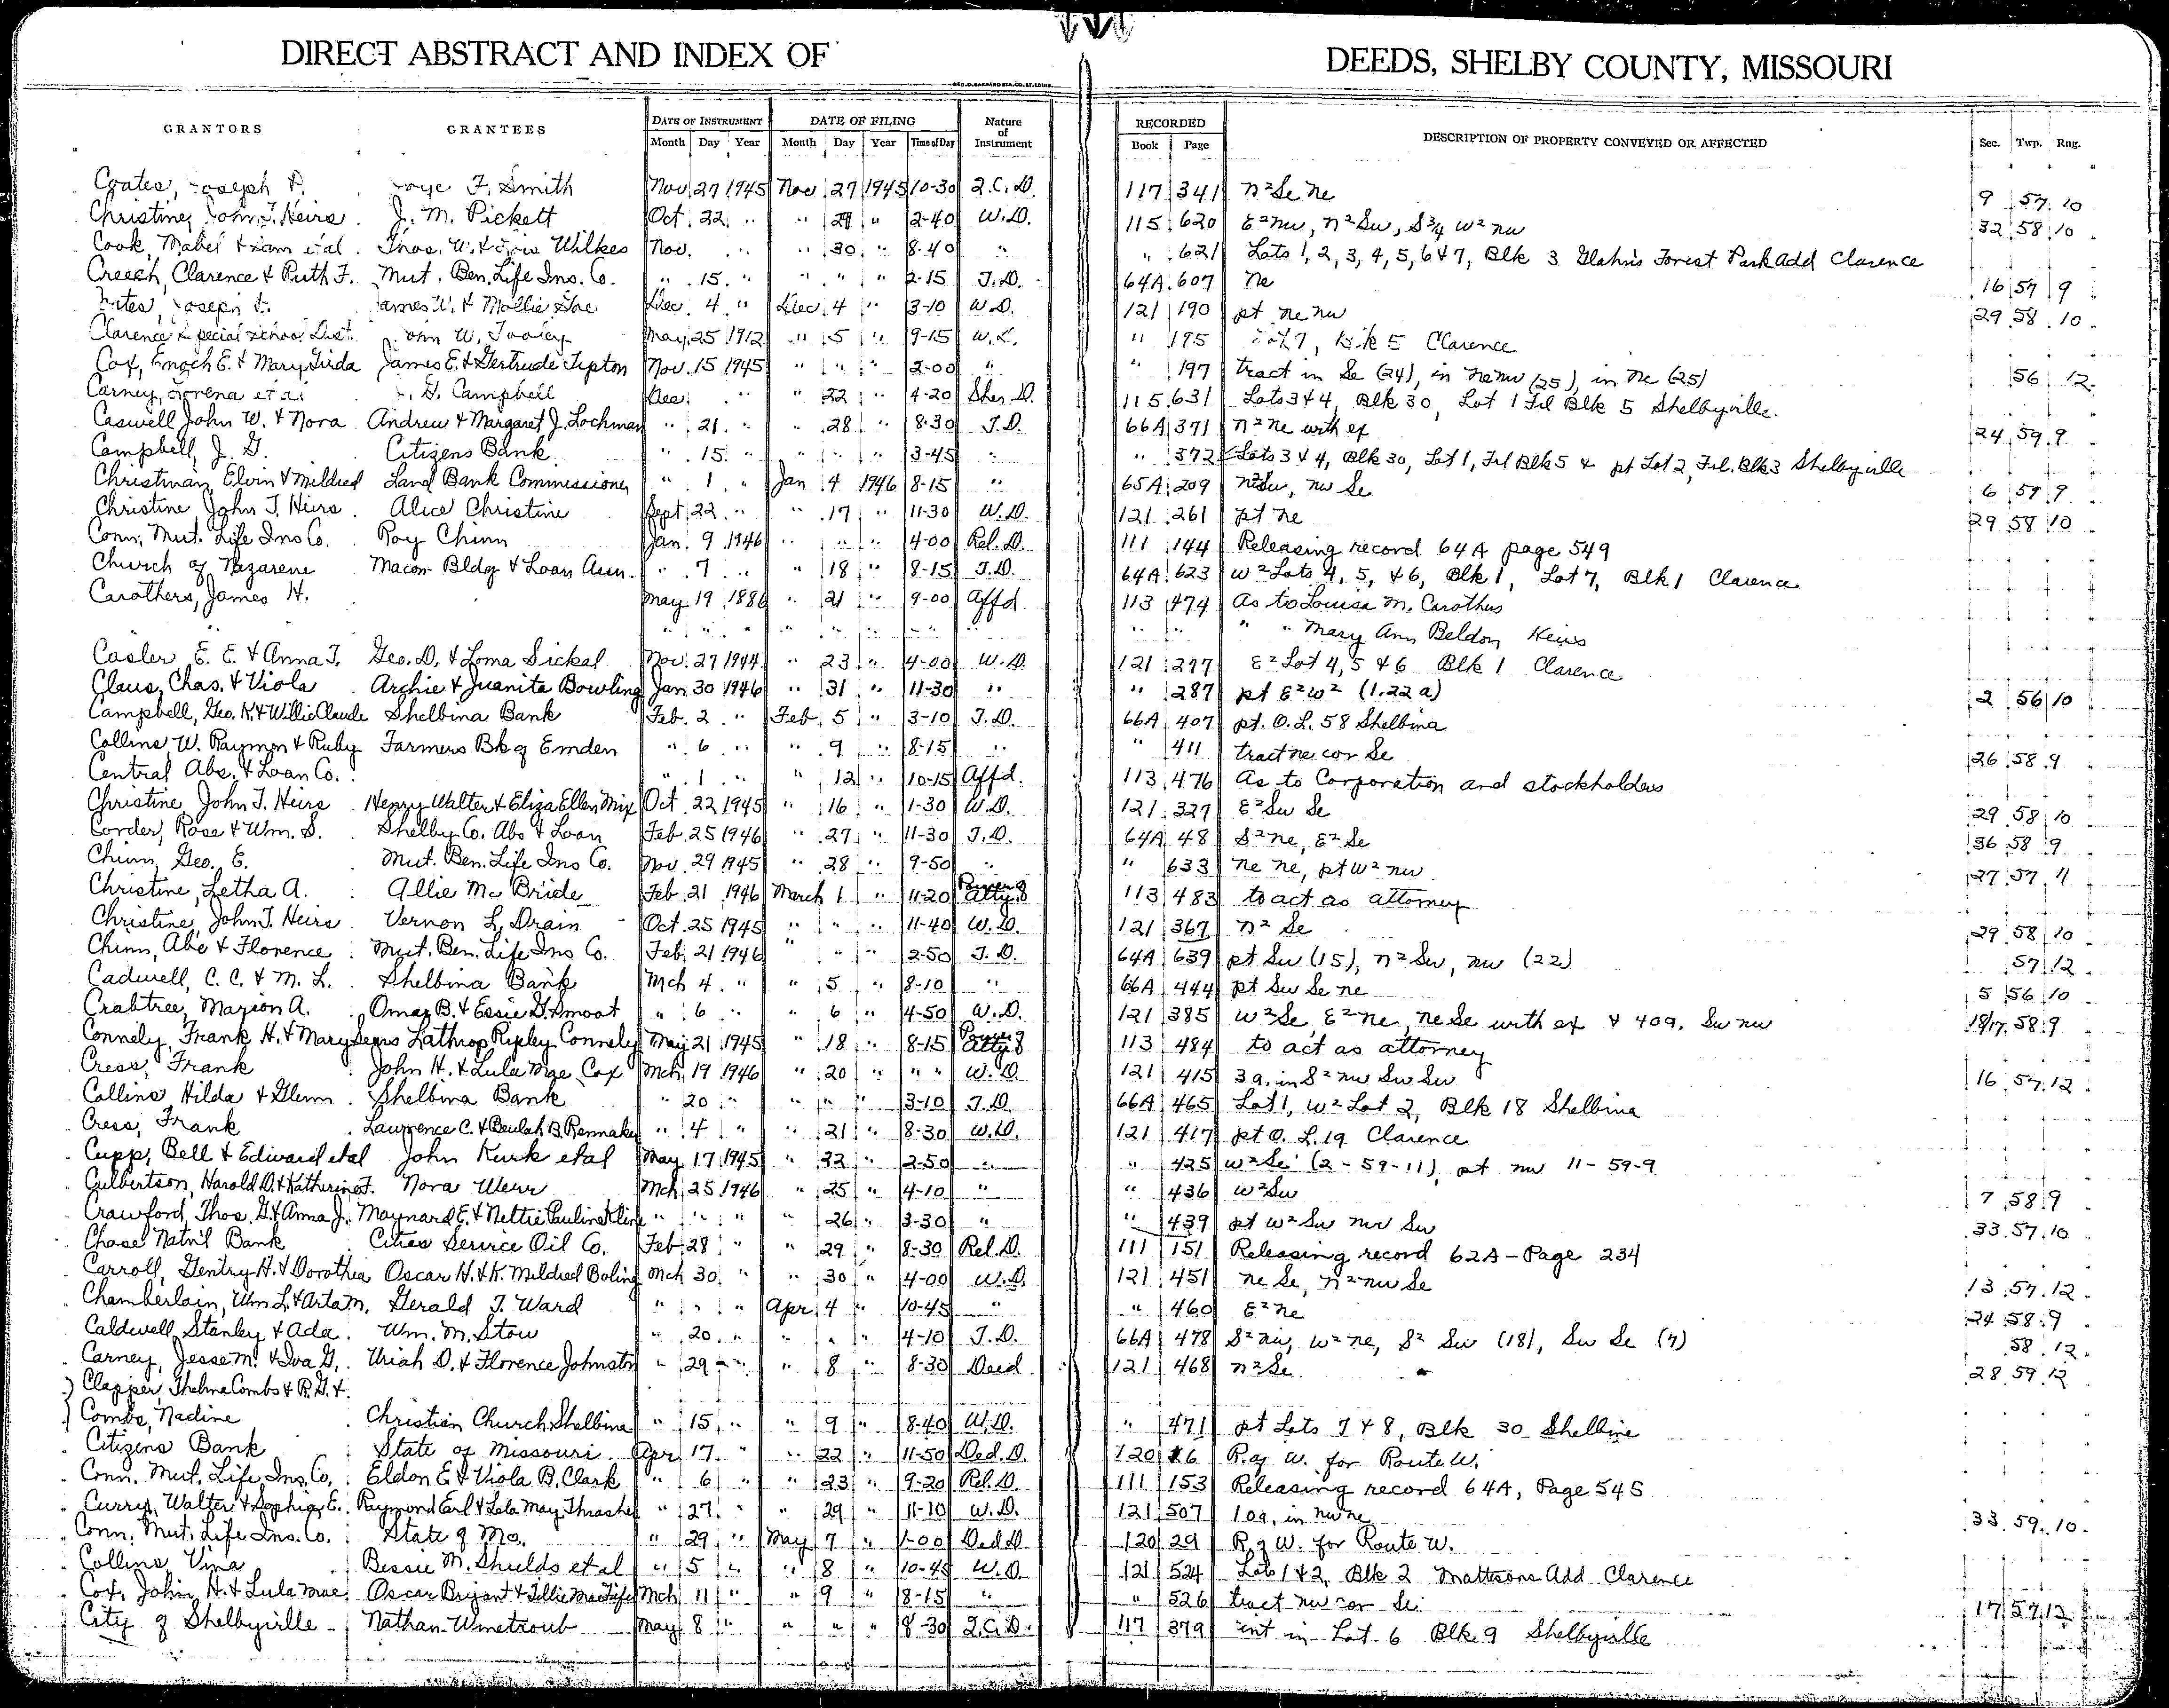 DIRECT ABSTRACT AND INDEX OF DEEDS, SHELBY COUNTY, MISSOURI
GEO. D. BARNARD STA. CO. ST. LOUIS
GRANTORS GRANTEES DATE OF INSTRUMENT DATE OF FILING Nature of Instrument RECORDED DESCRIPTION OF PROPERTY CONVEYED OR AFFECTED Sec. Twp. Rng.
Month Day Year Month Day Year Time of Day Book Page
Coates, Joseph F. Smith Nov 27 1945 Nov 27 1945 10-30 Q.C.D. 117 341 N² Se Ne 9 57 10
Christine, John T. Heirs J. M. Pickett Oct. 22 " " " 2-40 W.D. 115 620 E² nw, N² Sw, S¾ W² nw 32 58 10
Cook, Mabel & Sam et al Thos. W. & Wilkes Nov. " 30 " 8-40 " " 621 Lots 1, 2, 3, 4, 5, 6 & 7, Blk 3 Glahns Forest Park Add Clarence
Creech, Clarence & Ruth F. Mut. Ben. Life Ins. Co. " 15 " " " " 2-15 T.D. 64A 607 Ne 16 57 9
Joseph James W. & Mollie Dec. 4 " Dec. 4 " 3-10 W.D. 121 190 pt ne nw 29 58 10
Clarence Special School Dist. John W. Tooley May 25 1912 " 5 " 9-15 W.D. " 195 Lot 7, Blk 5 Clarence
Cox, Enoch E. & Mary Girda James E. & Gertrude Tipton Nov. 15 1945 " " " 2-00 " " 197 tract in Se (24), in ne nw (25), in Ne (25) 56 12
Carney, Lorena et al J. G. Campbell Dec. " " 22 " 4-20 Sher. D. 115 631 Lots 3 & 4, Blk 30, Lot 1 Frl Blk 5 Shelbyville.
Caswell John W. & Nora Andrew & Margaret J. Lochman " 21 " " 28 " 8-30 T.D. 66A 371 N² ne with ex 24 59 9
Campbell, J. G. Citizens Bank " 15 " " " " 3-45 " " 372 Lots 3 & 4, Blk 30, Lot 1, Frl Blk 5 & pt Lot 2, Frl. Blk 3 Shelbyville
Christman, Elvin & Mildred Land Bank Commissioner " 1 " Jan 4 1946 8-15 " 65A 209 N² Sw, nw Se 6 57 9
Christine John T. Heirs Alice Christine Sept 22 " " 17 " 11-30 W.D. 121 261 pt ne 29 58 10
Conn. Mut. Life Ins Co. Roy Chinn Jan. 9 1946 " " " 4-00 Rel. D. 111 144 Releasing record 64A page 549
Church of Nazarene Macon Bldg & Loan Assn. " 7 " " 18 " 8-15 T.D. 64A 623 W² Lots 4, 5, & 6, Blk 1, Lot 7, Blk 1 Clarence
Carothers, James H. May 19 1886 " 21 " 9-00 Affd. 113 474 As to Louisa M. Carothers
" " " " " " " " " " " " Mary Ann Beldon Heirs
Casler E. E. & Anna T. Geo. D. & Loma Sickal Nov. 27 1944 " 23 " 4-00 W.D. 121 277 E² Lot 4, 5 & 6 Blk 1 Clarence
Claus, Chas. & Viola Archie & Juanita Bowling Jan 30 1946 " 31 " 11-30 " " 287 pt E² W² (1.22 a) 2 56 10
Campbell, Geo. K. & Willie Claude Shelbina Bank Feb. 2 " Feb. 5 " 3-10 T.D. 66A 407 pt. O.L. 58 Shelbina
Collins, W. Raymon & Ruby Farmers Bk of Emden " 6 " " 9 " 8-15 " " 411 tract ne cor Se 26 58 9
Central Abs. & Loan Co. " 1 " " 12 " 10-15 Affd. 113 476 As to Corporation and stockholders
Christine, John T. Heirs Henry Walter & Eliza Ellen Mix Oct. 22 1945 " 16 " 1-30 W.D. 121 327 E² Sw Se 29 58 10
Corder, Rose & Wm. S. Shelby Co. Abs & Loan Feb. 25 1946 " 27 " 11-30 T.D. 64A 48 S² ne, E² Se 36 58 9
Chinn, Geo. E. Mut. Ben. Life Ins Co. Nov. 29 1945 " 28 " 9-50 " " 633 Ne ne, pt W² nw 27 57 11
Christine, Letha A. Allie McBride Feb. 21 1946 March 1 " 11-20 Power of Atty 113 483 to act as attorney
Christine, John T. Heirs Vernon L. Drain Oct. 25 1945 " " " 11-40 W.D. 121 367 N² Se 29 58 10
Chinn, Abe & Florence Mut. Ben. Life Ins Co. Feb. 21 1946 " " " 2-50 T.D. 64A 639 pt Sw (15), N² Sw, nw (22) 57 12
Cadwell, C. C. & M. L. Shelbina Bank Mch 4 " " 5 " 8-10 " 66A 444 pt Sw Se ne 5 56 10
Crabtree, Marion A. Omar B. & Essie G. Smoot " 6 " " 6 " 4-50 W.D. 121 385 W² Se, E² ne, ne Se with ex & 40a. Sw nw 18/17 58 9
Connely, Frank H. & Mary Sears Lathrop Ripley Connely May 21 1945 " 18 " 8-15 Power of Atty 113 484 to act as attorney
Cress, Frank John H. & Lula Mae Cox Mch. 19 1946 " 20 " " " W.D. 121 415 3 a. in S² nw Sw Sw 16 57 12
Collins, Hilda & Glenn Shelbina Bank " 20 " " " " 3-10 T.D. 66A 465 Lot 1, W² Lot 2, Blk 18 Shelbina
Cress, Frank Lawrence C. & Beulah B. Rennaker " 4 " " 21 " 8-30 W.D. 121 417 pt O.L. 19 Clarence
Cupp, Bell & Edward et al John Kurk et al May 17 1945 " 22 " 2-50 " " 425 W² Se (2-59-11), pt nw 11-59-9
Culbertson, Harold D. & Katherine F. Nora Weur Mch. 25 1946 " 25 " 4-10 " " 436 W² Sw 7 58 9
Crawford, Thos. G. & Anna J. Maynard E. & Nettie Pauline Kline " " " " 26 " 3-30 " " 439 pt W² Sw nw Sw 33 57 10
Chase Nat'l Bank Cities Service Oil Co. Feb. 28 " " 29 " 8-30 Rel. D. 111 151 Releasing record 62A - Page 234
Carroll, Gentry H. & Dorothea Oscar H. & K. Mildred Boling Mch 30 " " 30 " 4-00 W.D. 121 451 ne Se, N² nw Se 13 57 12
Chamberlain, Wm L. & Arta M. Gerald T. Ward " " " Apr 4 " 10-45 " " 460 E² ne 24 58 9
Caldwell, Stanley & Ada Wm. M. Stow " 20 " " " " 4-10 T.D. 66A 478 S² nw, W² ne, S² Sw (18), Sw Se (7) 58 12
Carney, Jesse M. & Iva G. Uriah D. & Florence Johnston " 29 " " 8 " 8-30 Deed 121 468 N² Se 28 59 12
Clapper, Thelma Combs & R. G. &
Combs, Nadine Christian Church Shelbina " 15 " " 9 " 8-40 W.D. " 471 pt Lots 7 & 8, Blk 30 Shelbina
Citizens Bank State of Missouri Apr 17 " " 22 " 11-50 Ded. D. 120 16 R. of W. for Route W.
Conn. Mut. Life Ins. Co. Eldon E. & Viola B. Clark " 6 " " 23 " 9-20 Rel. D. 111 153 Releasing record 64A, Page 545
Curry, Walter & Sophia E. Raymond Earl & Lela May Thrasher " 27 " " 29 " 11-10 W.D. 121 507 10a. in nw ne 33 59 10
Conn. Mut. Life Ins. Co. State of Mo. " 29 " May 7 " 1-00 Ded D. 120 29 R. of W. for Route W.
Collins, Vina Bessie M. Shulds et al " 5 " " 8 " 10-45 W.D. 121 524 Lots 1 & 2, Blk 2 Mattsons Add Clarence
Cox, John H. & Lula Mae Oscar Bryant & Tillie Mae Fifer Mch 11 " " 9 " 8-15 " " 526 tract nw cor Se 17 57 12
City of Shelbyville Nathan Winetroub May 8 " " " " 8-30 Q.C.D. 117 379 int in Lot 6 Blk 9 Shelbyville